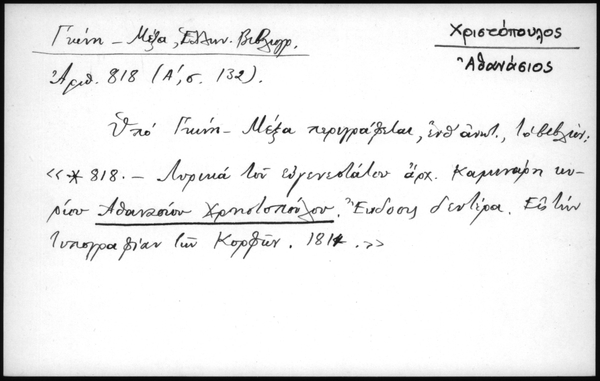 Γκίνη – Μέξα, Ἑλλην. Βιβλιογρ.
Χριστόπουλος
Ἀθανάσιος
Ἀριθ. 818 (Α', σ. 132).
Ὑπό Γκίνη – Μέξα περιγράφεται, ἔνθ' ἀνωτ., τό βιβλίον:
«*818. – Λυρικά τοῦ εὐγενεστάτου ἄρχ. Καμινάρη κυ-
ρίου Ἀθανασίου Χρηστοπούλου. Ἔκδοσις δευτέρα. Εἰς τήν
τυπογραφίαν τῶν Κορφῶν. 181 .»